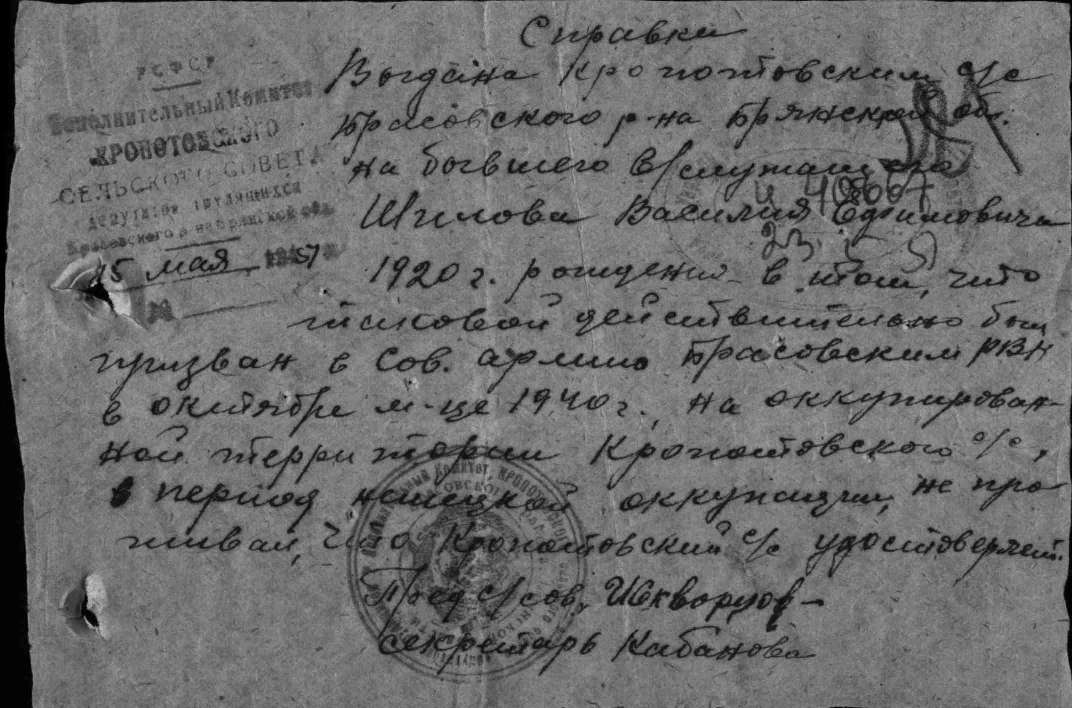 Справка
РСФСР
Исполнительный Комитет
КРОПОТОВСКОГО
СЕЛЬСКОГО СОВЕТА
депутатов трудящихся
Брасовского р-на Брянской обл.
15 мая 1951
№
Выдана Кропотовским с/с
Брасовского р-на Брянской об.
на бывшего в/служащего
и 408667
Шилова Василия Ефимовича
23 5 51
1920 г. рождения в том, что
таковой действительно был
призван в Сов. армию Брасовским РВК
в октябре м-це 1940 г., на оккупирован-
ной территории Кропотовского с/с,
в период немецкой оккупации, не про
живал, что Кропотовский с/с удостоверяет.
Пред с/сов.
секретарь Кабанова